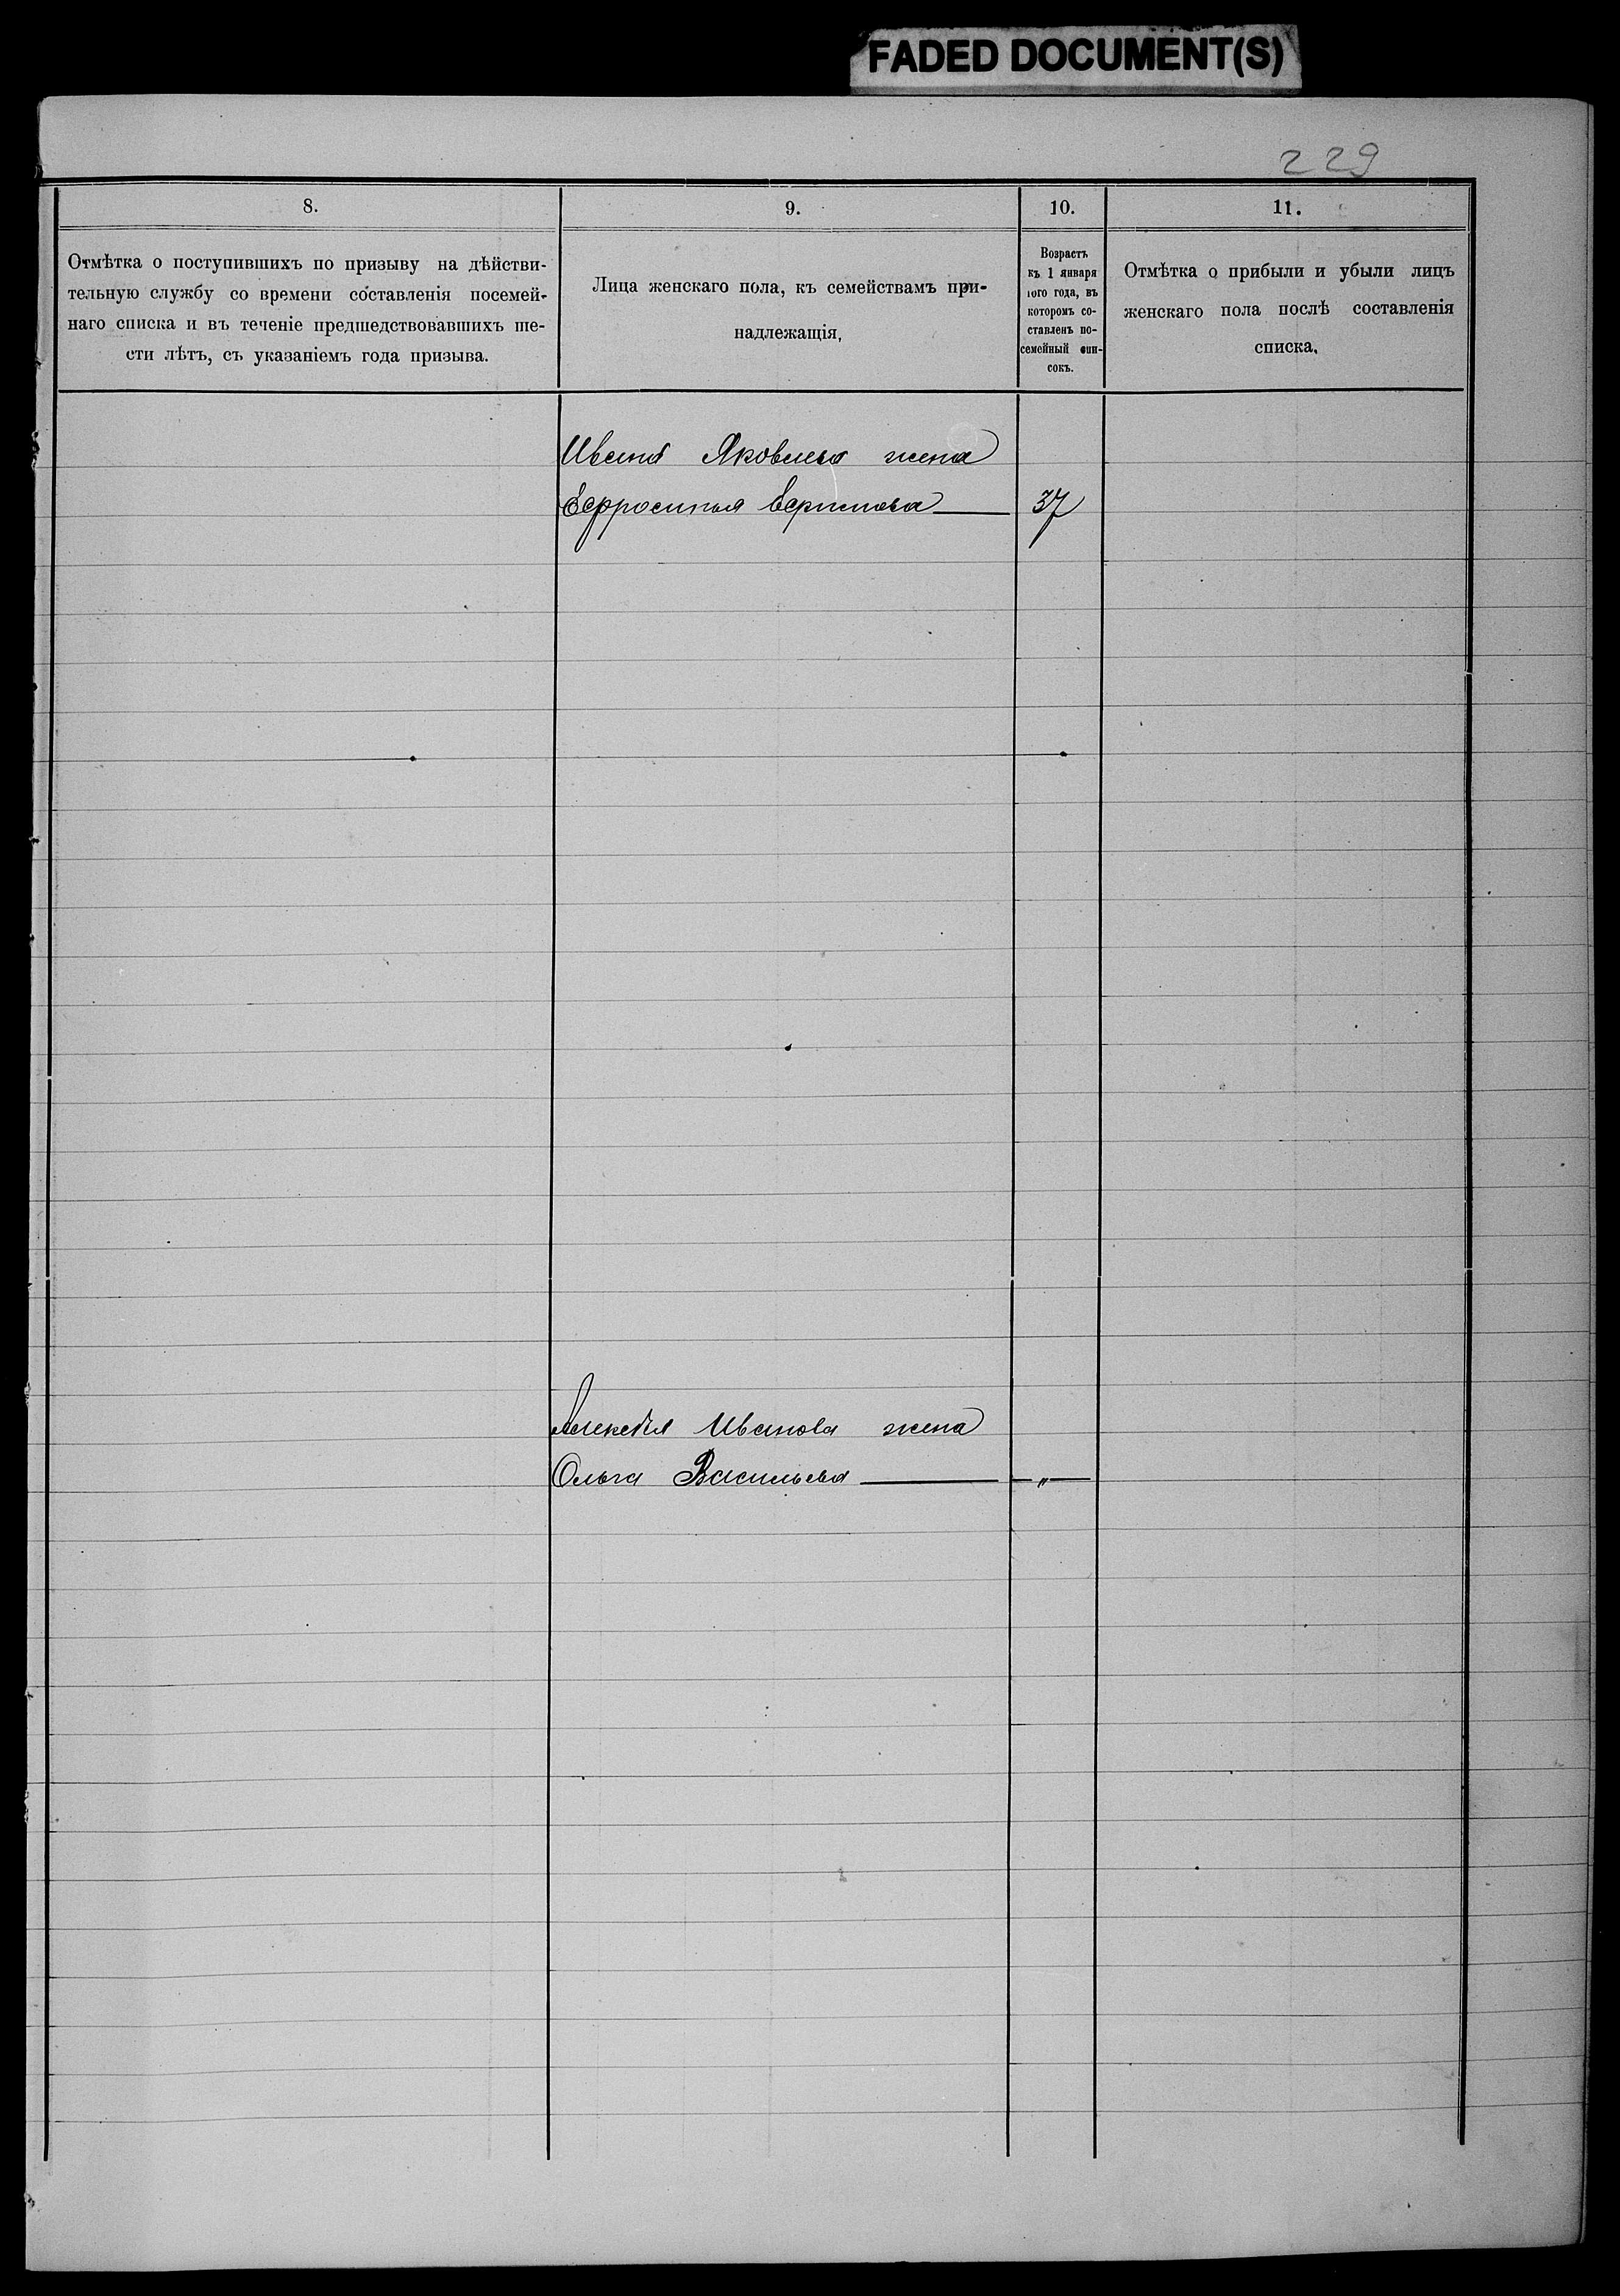 FADED DOCUMENT(S)
229
8.
9.
10.
11.
Отмѣтка о поступившихъ по призыву на дѣйстви-
тельную службу со времени составленія посемей-
наго списка и въ теченіе предшедствовавшихъ ше-
сти лѣтъ, съ указаніемъ года призыва.
Лица женскаго пола, къ семействамъ при-
надлежащія,
Возрастъ
къ 1 января
того года, въ
которомъ со-
ставленъ по-
семейный спи-
сокъ.
Отмѣтка о прибыли и убыли лицъ
женскаго пола послѣ составленія
списка.
Ивана Яковлева жена
Ефросинья 37
Алексѣя Иванова жена
Ольга Васильева — „ —